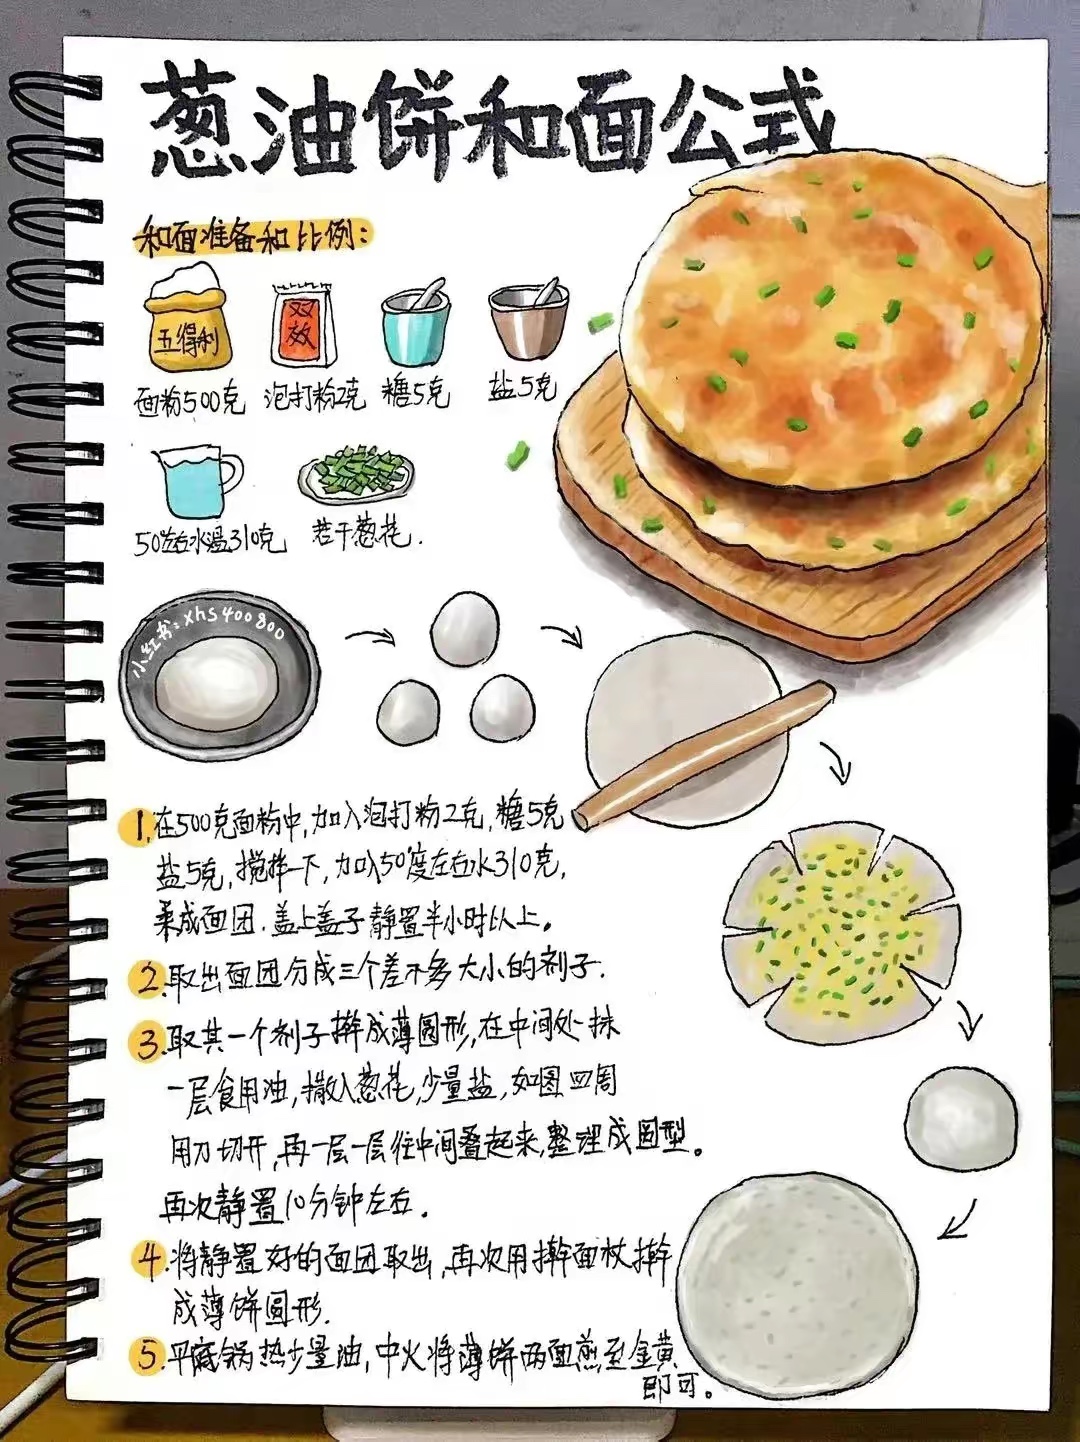 葱油饼和面公式
和面准备和比例：
五得利
双效
面粉500克
泡打粉2克
糖5克
盐5克
50左右水温310克
若干葱花.
小红书:xhs400800
1.在500克面粉中,加入泡打粉2克,糖5克
盐5克,搅拌一下,加入50度左右水310克,
揉成面团.盖上盖子静置半小时以上。
2.取出面团分成三个差不多大小的剂子.
3.取其一个剂子擀成薄圆形,在中间处抹
一层食用油,撒入葱花,少量盐,如图四周
用刀切开,再一层一层往中间叠起来,整理成圆型。
再次静置10分钟左右。
4.将静置好的面团取出,再次用擀面杖擀
成薄饼圆形.
5.平底锅热少量油,中火将薄饼两面煎至金黄
即可。